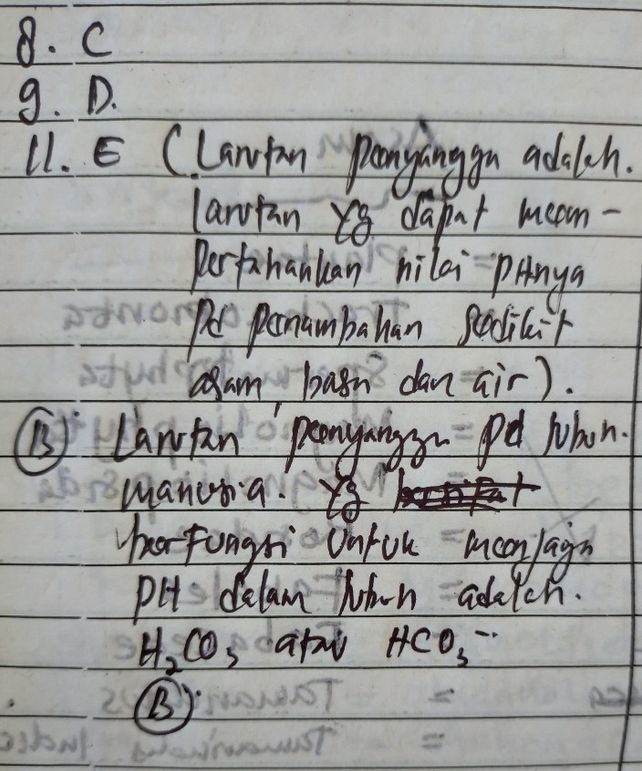 8. C
9. D.
11. E (Larutan penyangga adalah.
larutan yg dapat mem-
pertahankan nilai pHnya
pd penambahan sedikit
asam, basa dan air).
(B) Larutan penyangga pd tubuh.
manusia. yg
berfungsi untuk menjaga
PH dalam tubuh adalah.
H₂CO₃ atau HCO₃⁻.
(B)